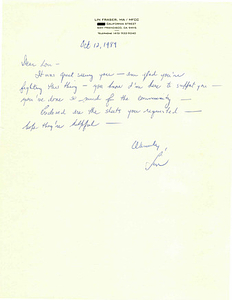 JIM FRASER, MA / MFCC
CALIFORNIA STREET
SAN FRANCISCO, CA
Oct 12, 1989
Dear Lou —
It was great seeing you — am glad you're
fighting this thing — you have I'm here to support you —
you've done so much for the community —
Enclosed are the sheets you requested —
hope they're helpful —
Warmly,
Jim